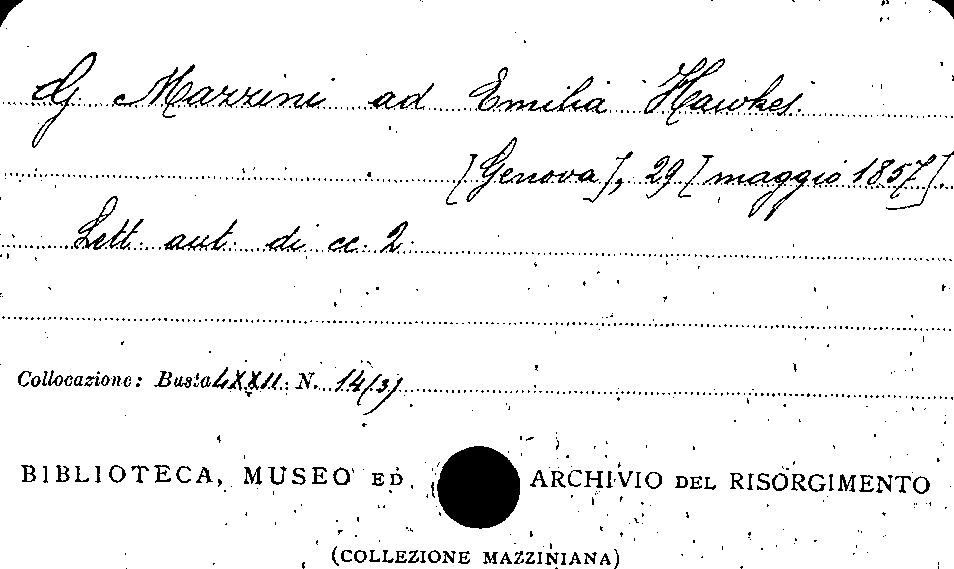 G. Mazzini ad Emilia Hawkes.
[Genova], 29 [maggio 1857].
Lett. aut. di cc. 2.
Collocazione: Busta LXXII. N. 14(3)
BIBLIOTECA, MUSEO ED ARCHIVIO DEL RISORGIMENTO
(COLLEZIONE MAZZINIANA)